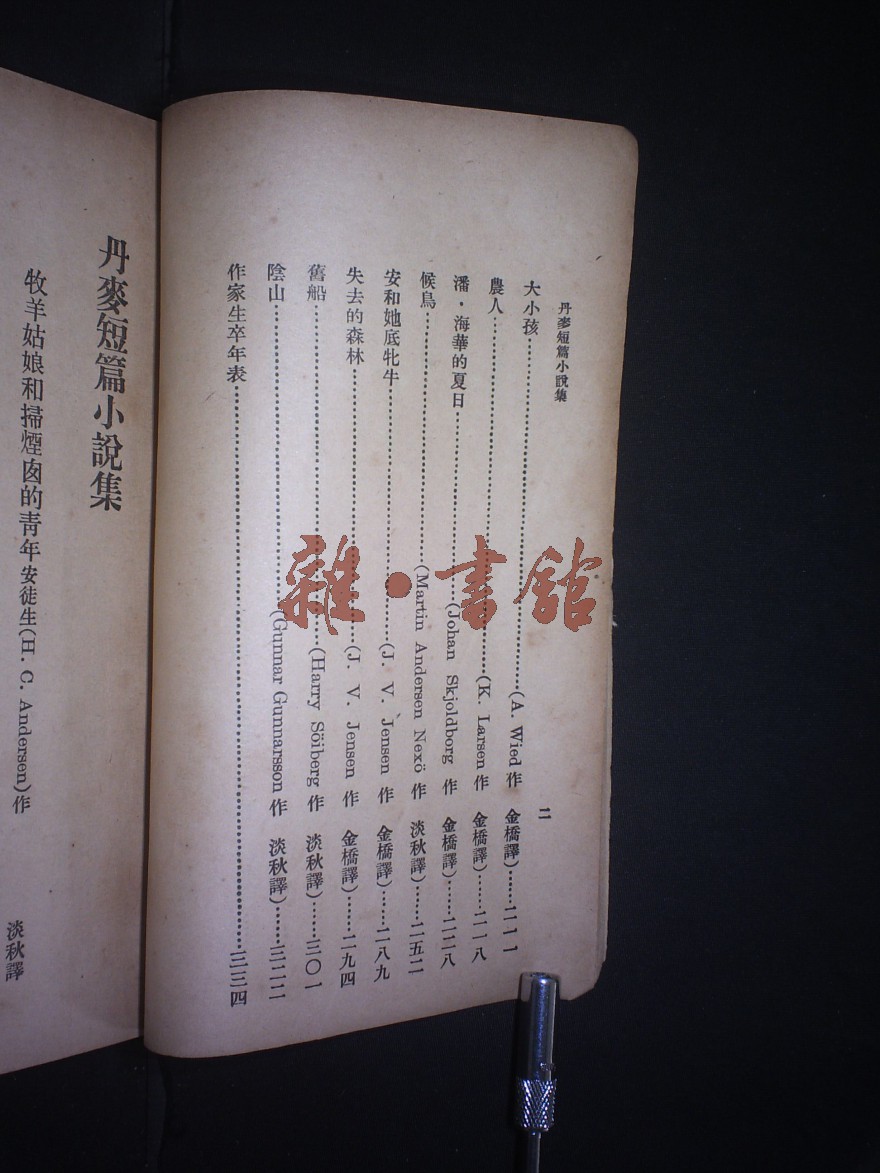 丹麥短篇小說集
二
大小孩……(A. Wied 作 金橋譯)……二一一
農人……(K. Larsen 作 金橋譯)……二一八
潘·海華的夏日……(Johan Skjoldborg 作 金橋譯)……二二八
候鳥……(Martin Andersen Nexö 作 淡秋譯)……二五二
安和她底牝牛……(J. V. Jensen 作 金橋譯)……二八九
失去的森林……(J. V. Jensen 作 金橋譯)……二九四
舊船……(Harry Söiberg 作 淡秋譯)……三〇一
陰山……(Gunnar Gunnarsson 作 淡秋譯)……三二二
作家生卒年表……三三四
丹麥短篇小說集
牧羊姑娘和掃煙囪的青年 安徒生(H. C. Andersen)作
淡秋譯
雜·書館